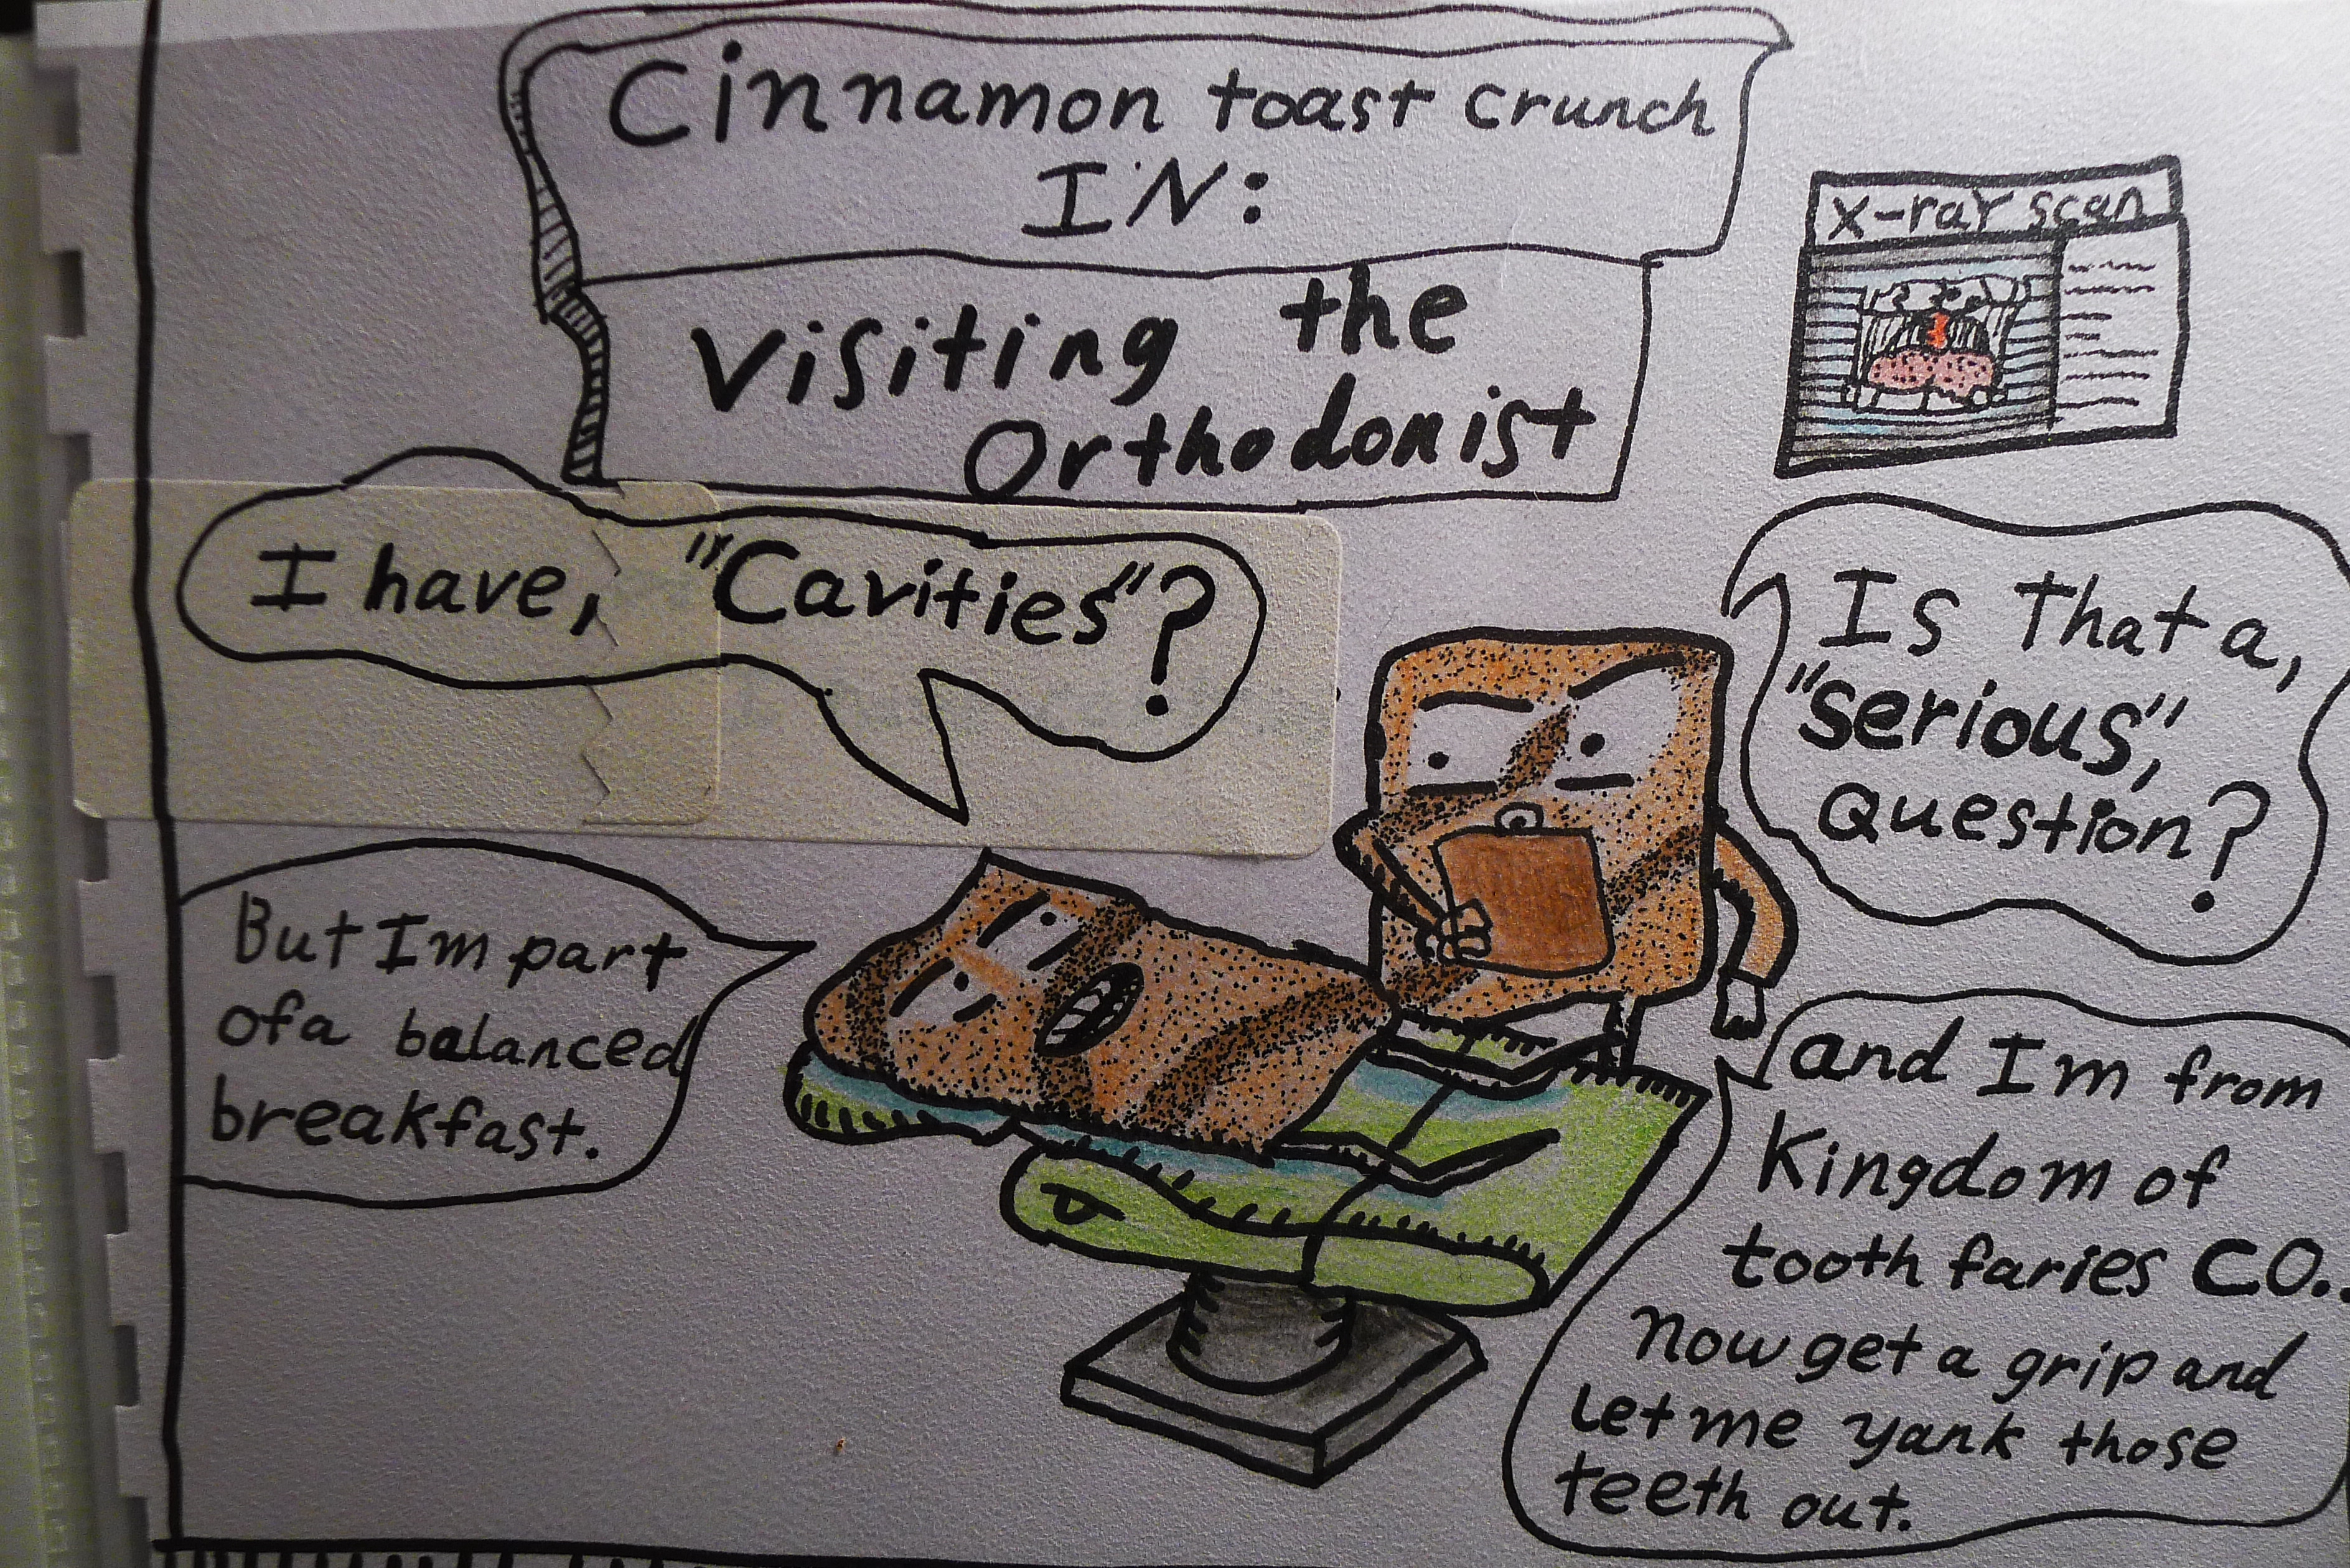 Cinnamon toast crunch
IN:
Visiting the
Orthodonist
X-ray scan
I have, "Cavities"?
Is That a,
"serious",
Question?
But Im part
of a balanced
breakfast.
and Im from
Kingdom of
tooth faries CO..
Now get a grip and
Let me yank those
teeth out.